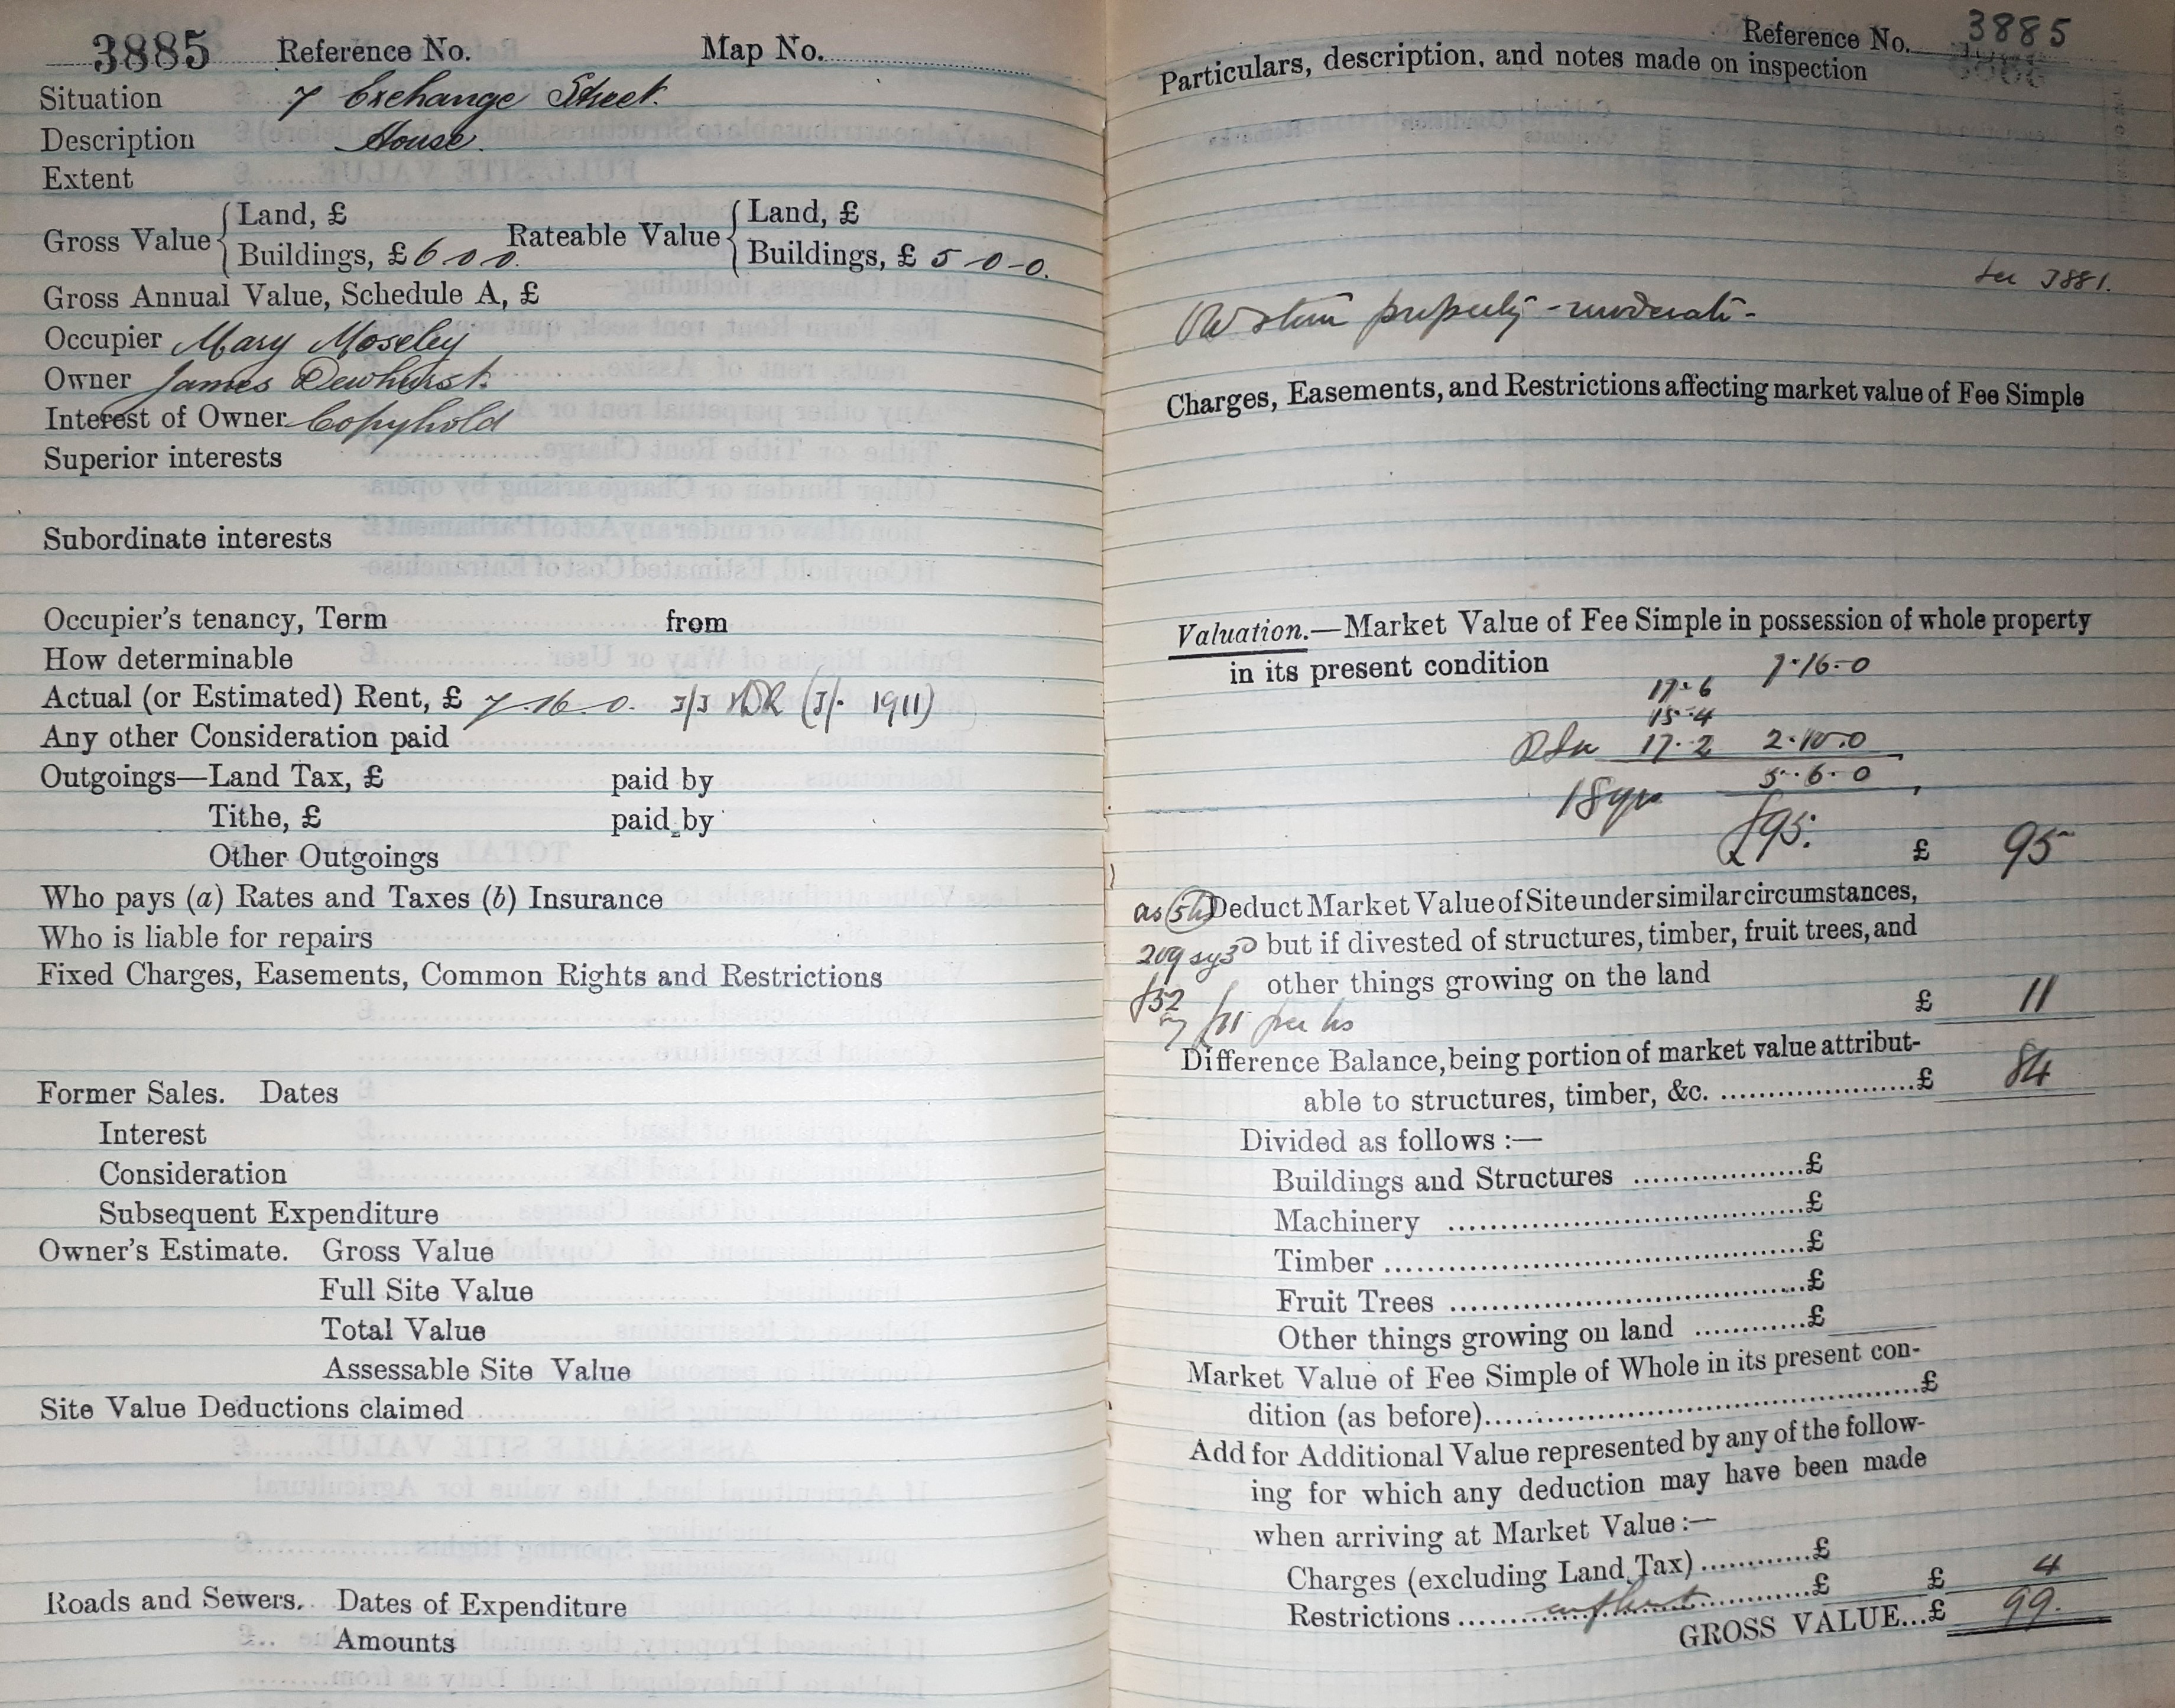 3885 Reference No. Map No.
Situation 7 Exchange Street.
Description House.
Extent
Gross Value { Land, £
Buildings, £ 6-0-0. Rateable Value { Land, £
Buildings, £ 5-0-0.
Gross Annual Value, Schedule A, £
Occupier Mary Moseley
Owner James Dewhurst.
Interest of Owner Copyhold
Superior interests
Subordinate interests
Occupier's tenancy, Term from
How determinable
Actual (or Estimated) Rent, £ 7-16-0. 3/3 (3/- 1911)
Any other Consideration paid
Outgoings—Land Tax, £ paid by
Tithe, £ paid by
Other Outgoings
Who pays (a) Rates and Taxes (b) Insurance
Who is liable for repairs
Fixed Charges, Easements, Common Rights and Restrictions
Former Sales. Dates
Interest
Consideration
Subsequent Expenditure
Owner's Estimate. Gross Value
Full Site Value
Total Value
Assessable Site Value
Site Value Deductions claimed
Roads and Sewers. Dates of Expenditure
Amounts
Reference No. 3885
Particulars, description, and notes made on inspection
see 3881.
Old stone property - moderate -
Charges, Easements, and Restrictions affecting market value of Fee Simple
Valuation.—Market Value of Fee Simple in possession of whole property
in its present condition 7-16-0
17-6
15-4
17-2 2-10-0
5-6-0
18 yrs
£95.
£ 95
as 5 hs Deduct Market Value of Site under similar circumstances,
209 sy but if divested of structures, timber, fruit trees, and
£52 other things growing on the land
£11 per hs £ 11
Difference Balance, being portion of market value attribut-
able to structures, timber, &c. ....................£ 84
Divided as follows :—
Buildings and Structures ..................£
Machinery ......................................£
Timber .............................................£
Fruit Trees ......................................£
Other things growing on land ............£
Market Value of Fee Simple of Whole in its present con-
dition (as before)..............................................£
Add for Additional Value represented by any of the follow-
ing for which any deduction may have been made
when arriving at Market Value :—
Charges (excluding Land Tax) ............£
Restrictions ....................................£ £ 4
GROSS VALUE...£ 99.